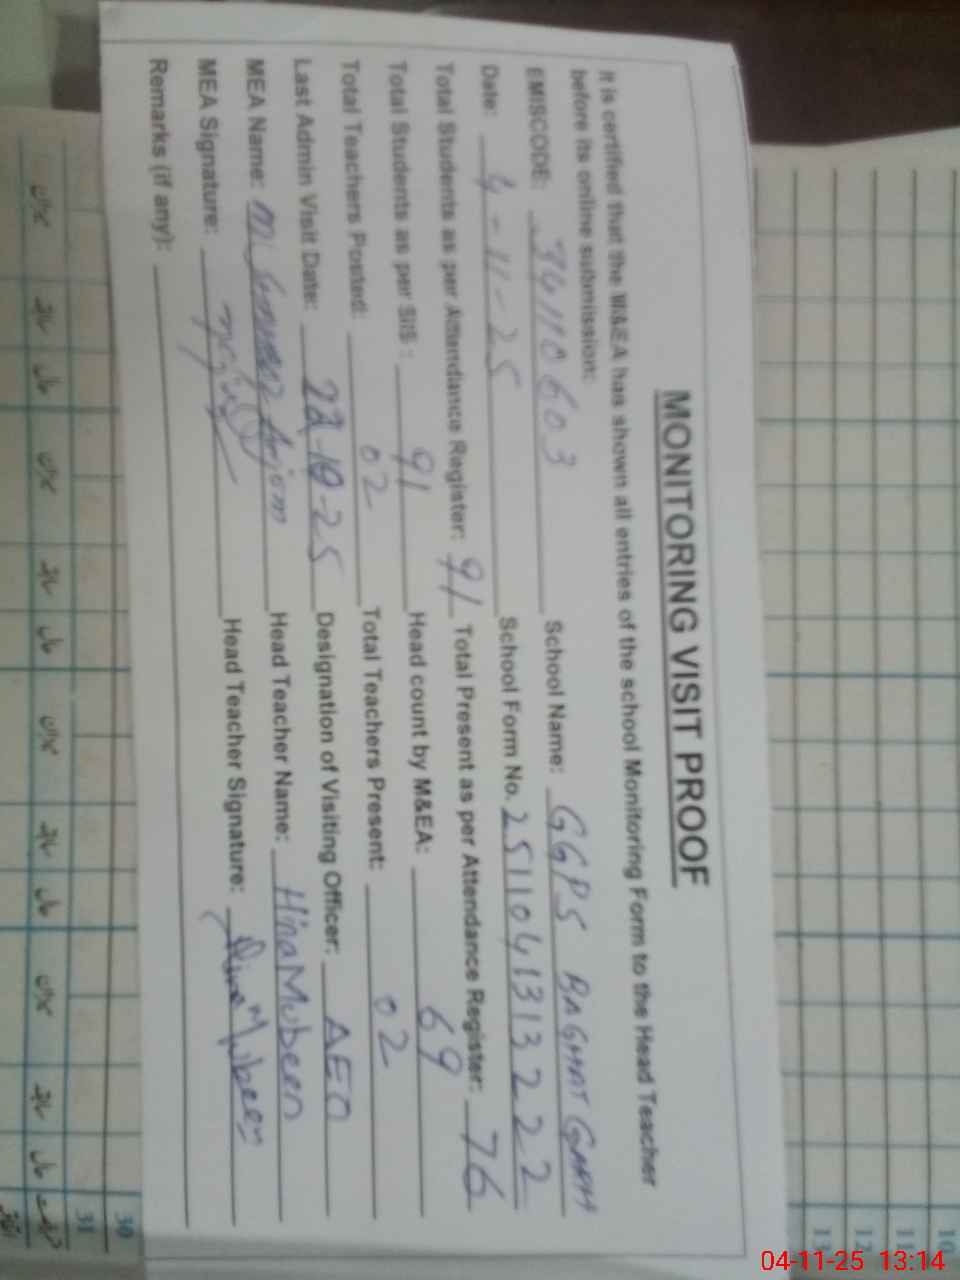 MONITORING VISIT PROOF
It is certified that the M&EA has shown all entries of the school Monitoring Form to the Head Teacher
before its online submission:
EMISCODE: 34110603 School Name: GGPS BAGHAT GARH
Date: 4-11-25 School Form No. 2511041313222
Total Students as per Attendance Register: 91 Total Present as per Attendance Register: 76
Total Students as per SIS: 91 Head count by M&EA: 69
Total Teachers Posted: 02 Total Teachers Present: 02
Last Admin Visit Date: 22-10-25 Designation of Visiting Officer: AEO
MEA Name: M Head Teacher Name: Hina Mubeen
MEA Signature: Head Teacher Signature: Hina Mubeen
Remarks (if any):
10
11
12
13
30
31
04-11-25 13:14